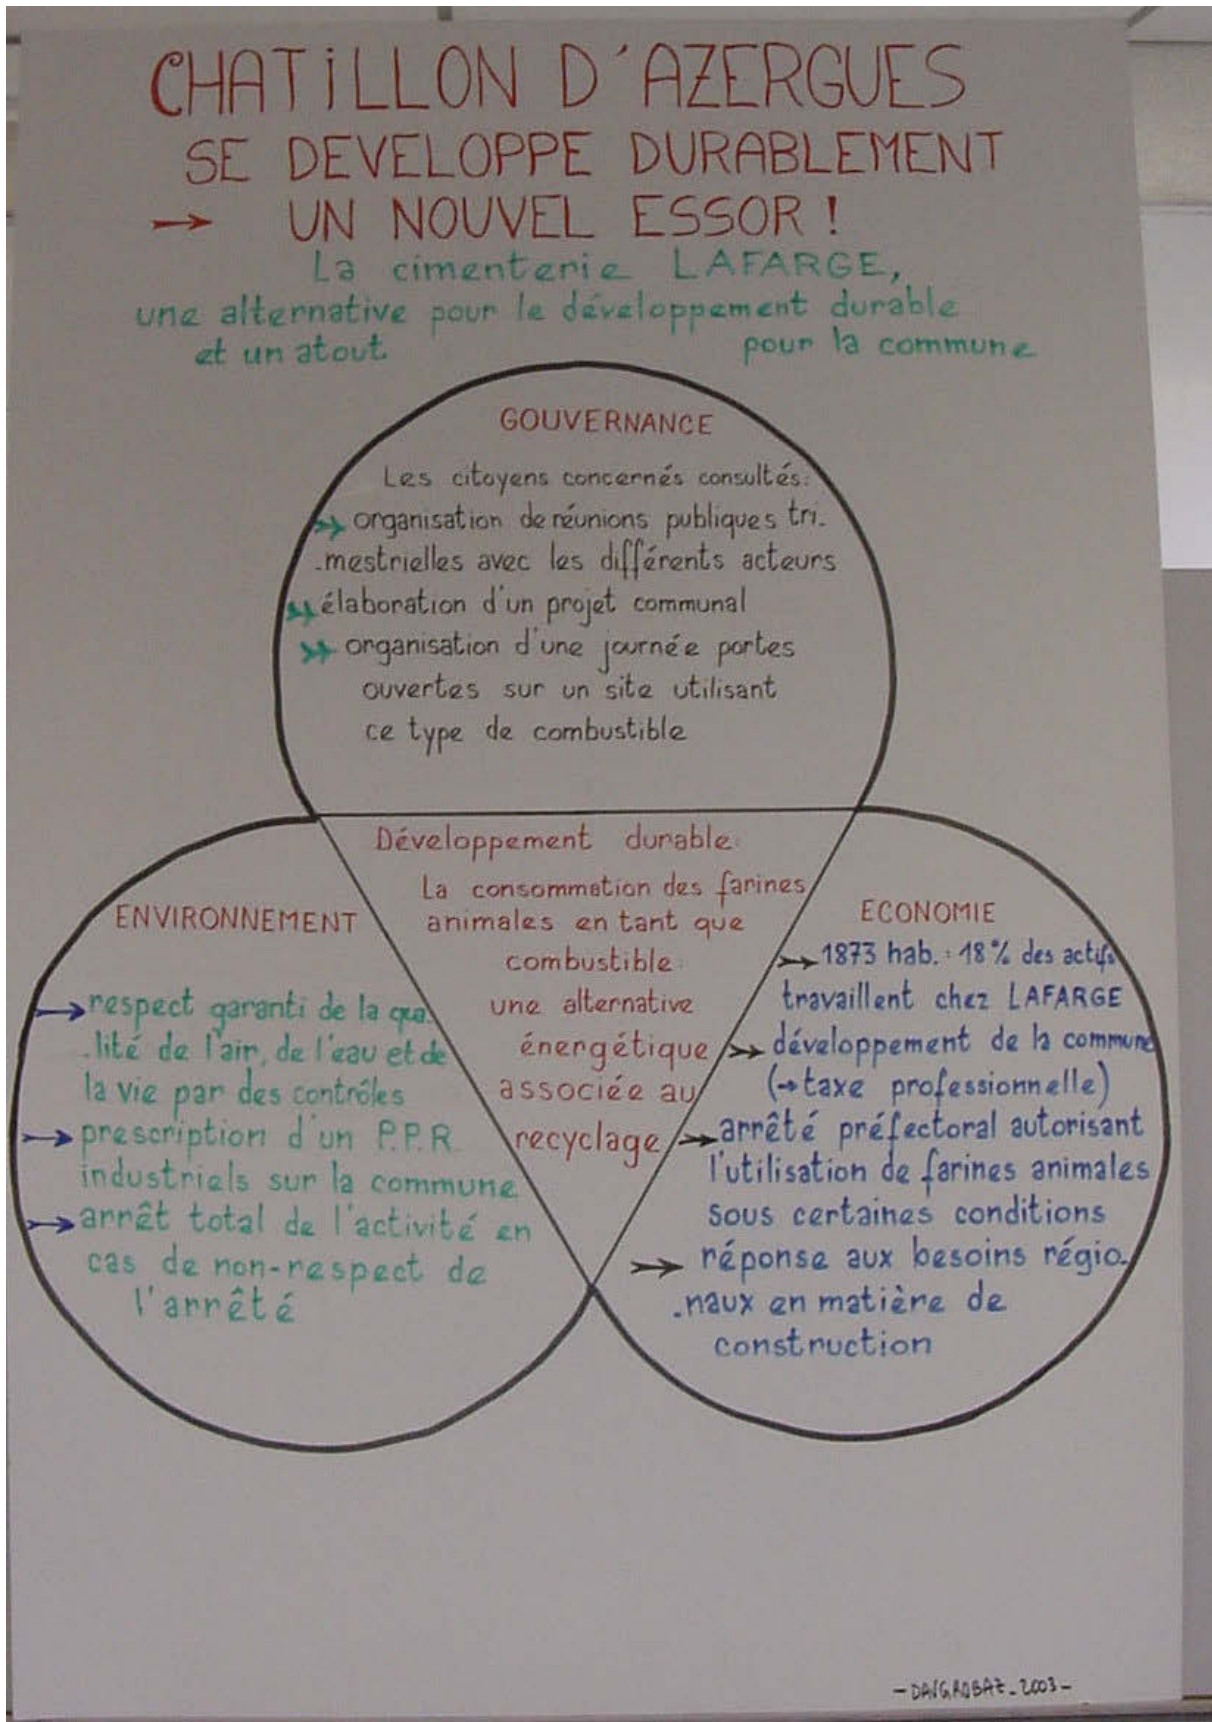 CHATiLLON D'AZERGUES
SE DEVELOPPE DURABLEMENT
→ UN NOUVEL ESSOR !
La cimenterie LAFARGE,
une alternative pour le développement durable
et un atout pour la commune
GOUVERNANCE
Les citoyens concernés consultés:
organisation de réunions publiques tri-
-mestrielles avec les différents acteurs
élaboration d'un projet communal
organisation d'une journée portes
ouvertes sur un site utilisant
ce type de combustible
Développement durable:
La consommation des farines
animales en tant que
combustible:
une alternative
énergétique
associée au
recyclage
ENVIRONNEMENT
→ respect garanti de la qua-
-lité de l'air, de l'eau et de
la vie par des contrôles
→ prescription d'un P.P.R
industriels sur la commune
→ arrêt total de l'activité en
cas de non-respect de
l'arrêté
ECONOMIE
→ 1873 hab. : 18% des actifs
travaillent chez LAFARGE
→ développement de la commune
(→ taxe professionnelle)
→ arrêté préfectoral autorisant
l'utilisation de farines animales
sous certaines conditions
→ réponse aux besoins régio-
-naux en matière de
construction
2003 -